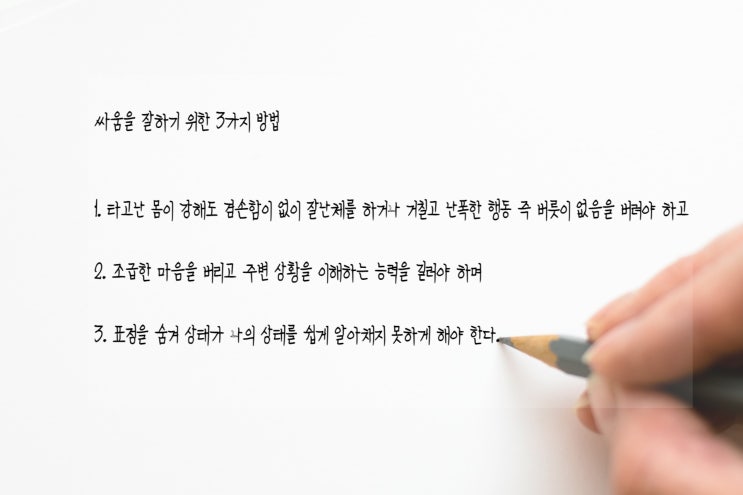 싸움을 잘하기 위한 3가지 방법
1. 타고난 몸이 강해도 겸손함이 없이 잘난체를 하거나 거칠고 난폭한 행동 즉 버릇이 없음을 버려야 하고
2. 조급한 마음을 버리고 주변 상황을 이해하는 능력을 길러야 하며
3. 표정을 숨겨 상태가 나의 상태를 쉽게 알아채지 못하게 해야 한다.